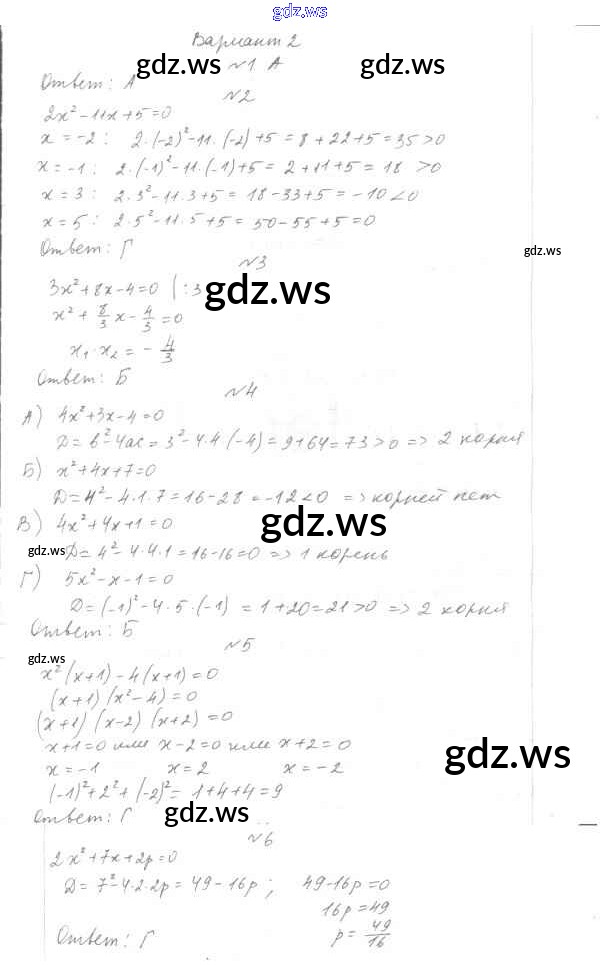 gdz.ws
Вариант 2
gdz.ws
gdz.ws
№1 А
Ответ: А
№2
2x² - 11x + 5 = 0
x = -2 : 2·(-2)² - 11·(-2) + 5 = 8 + 22 + 5 = 35 > 0
x = -1 : 2·(-1)² - 11·(-1) + 5 = 2 + 11 + 5 = 18 > 0
x = 3 : 2·3² - 11·3 + 5 = 18 - 33 + 5 = -10 < 0
x = 5 : 2·5² - 11·5 + 5 = 50 - 55 + 5 = 0
Ответ: Г
gdz.ws
№3
3x² + 8x - 4 = 0 | : 3
gdz.ws
x² + 8/3 x - 4/3 = 0
x₁·x₂ = - 4/3
Ответ: Б
№4
А) 4x² + 3x - 4 = 0
D = b² - 4ac = 3² - 4·4·(-4) = 9 + 64 = 73 > 0 => 2 корня
Б) x² + 4x + 7 = 0
D = 4² - 4·1·7 = 16 - 28 = -12 < 0 => корней нет
В) 4x² + 4x + 1 = 0
gdz.ws
gdz.ws
D = 4² - 4·4·1 = 16 - 16 = 0 => 1 корень
Г) 5x² - x - 1 = 0
D = (-1)² - 4·5·(-1) = 1 + 20 = 21 > 0 => 2 корня
Ответ: Б
№5
gdz.ws
x²(x+1) - 4(x+1) = 0
(x+1)(x² - 4) = 0
(x+1)(x-2)(x+2) = 0
x+1=0 или x-2=0 или x+2=0
gdz.ws
x = -1 x = 2 x = -2
(-1)² + 2² + (-2)² = 1 + 4 + 4 = 9
gdz.ws
Ответ: Г
№6
2x² + 7x + 2p = 0
D = 7² - 4·2·2p = 49 - 16p ; 49 - 16p = 0
16p = 49
p = 49/16
Ответ: Г
gdz.ws